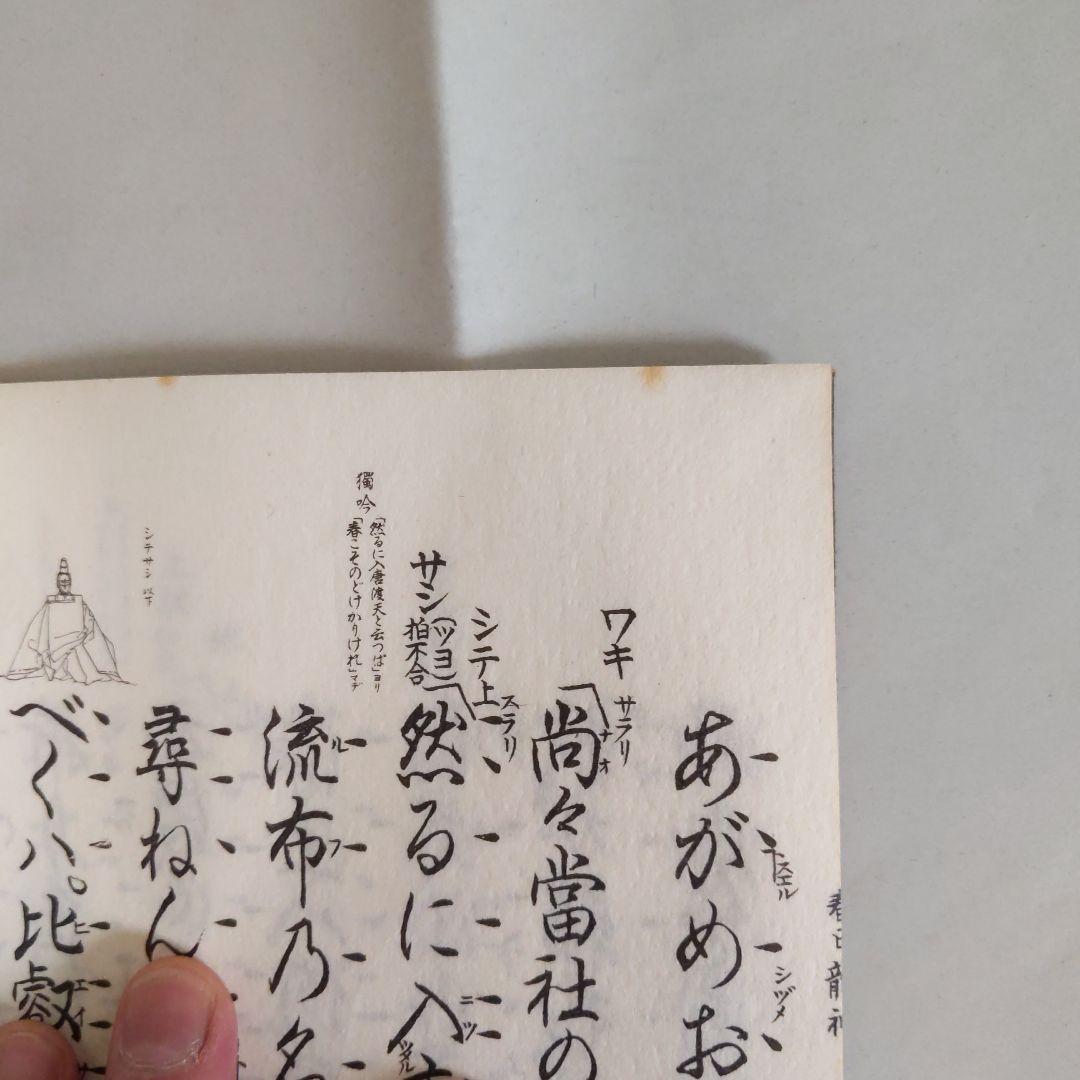 春日龍神
あがめお
スエル
シヅメ
ワキ
サラリ
尚々當社の
ナオ
シテ上
スラリ
サシ(ツヨ)
拍不合
然るに入
ニツ
獨吟
「然るに入唐渡天と云つぱ」ヨリ
「春こそのどけかりけれ」マデ
流布乃名
ルフ
尋ねん
シテサシ 以下
べくハ。比叡
ヒエイ